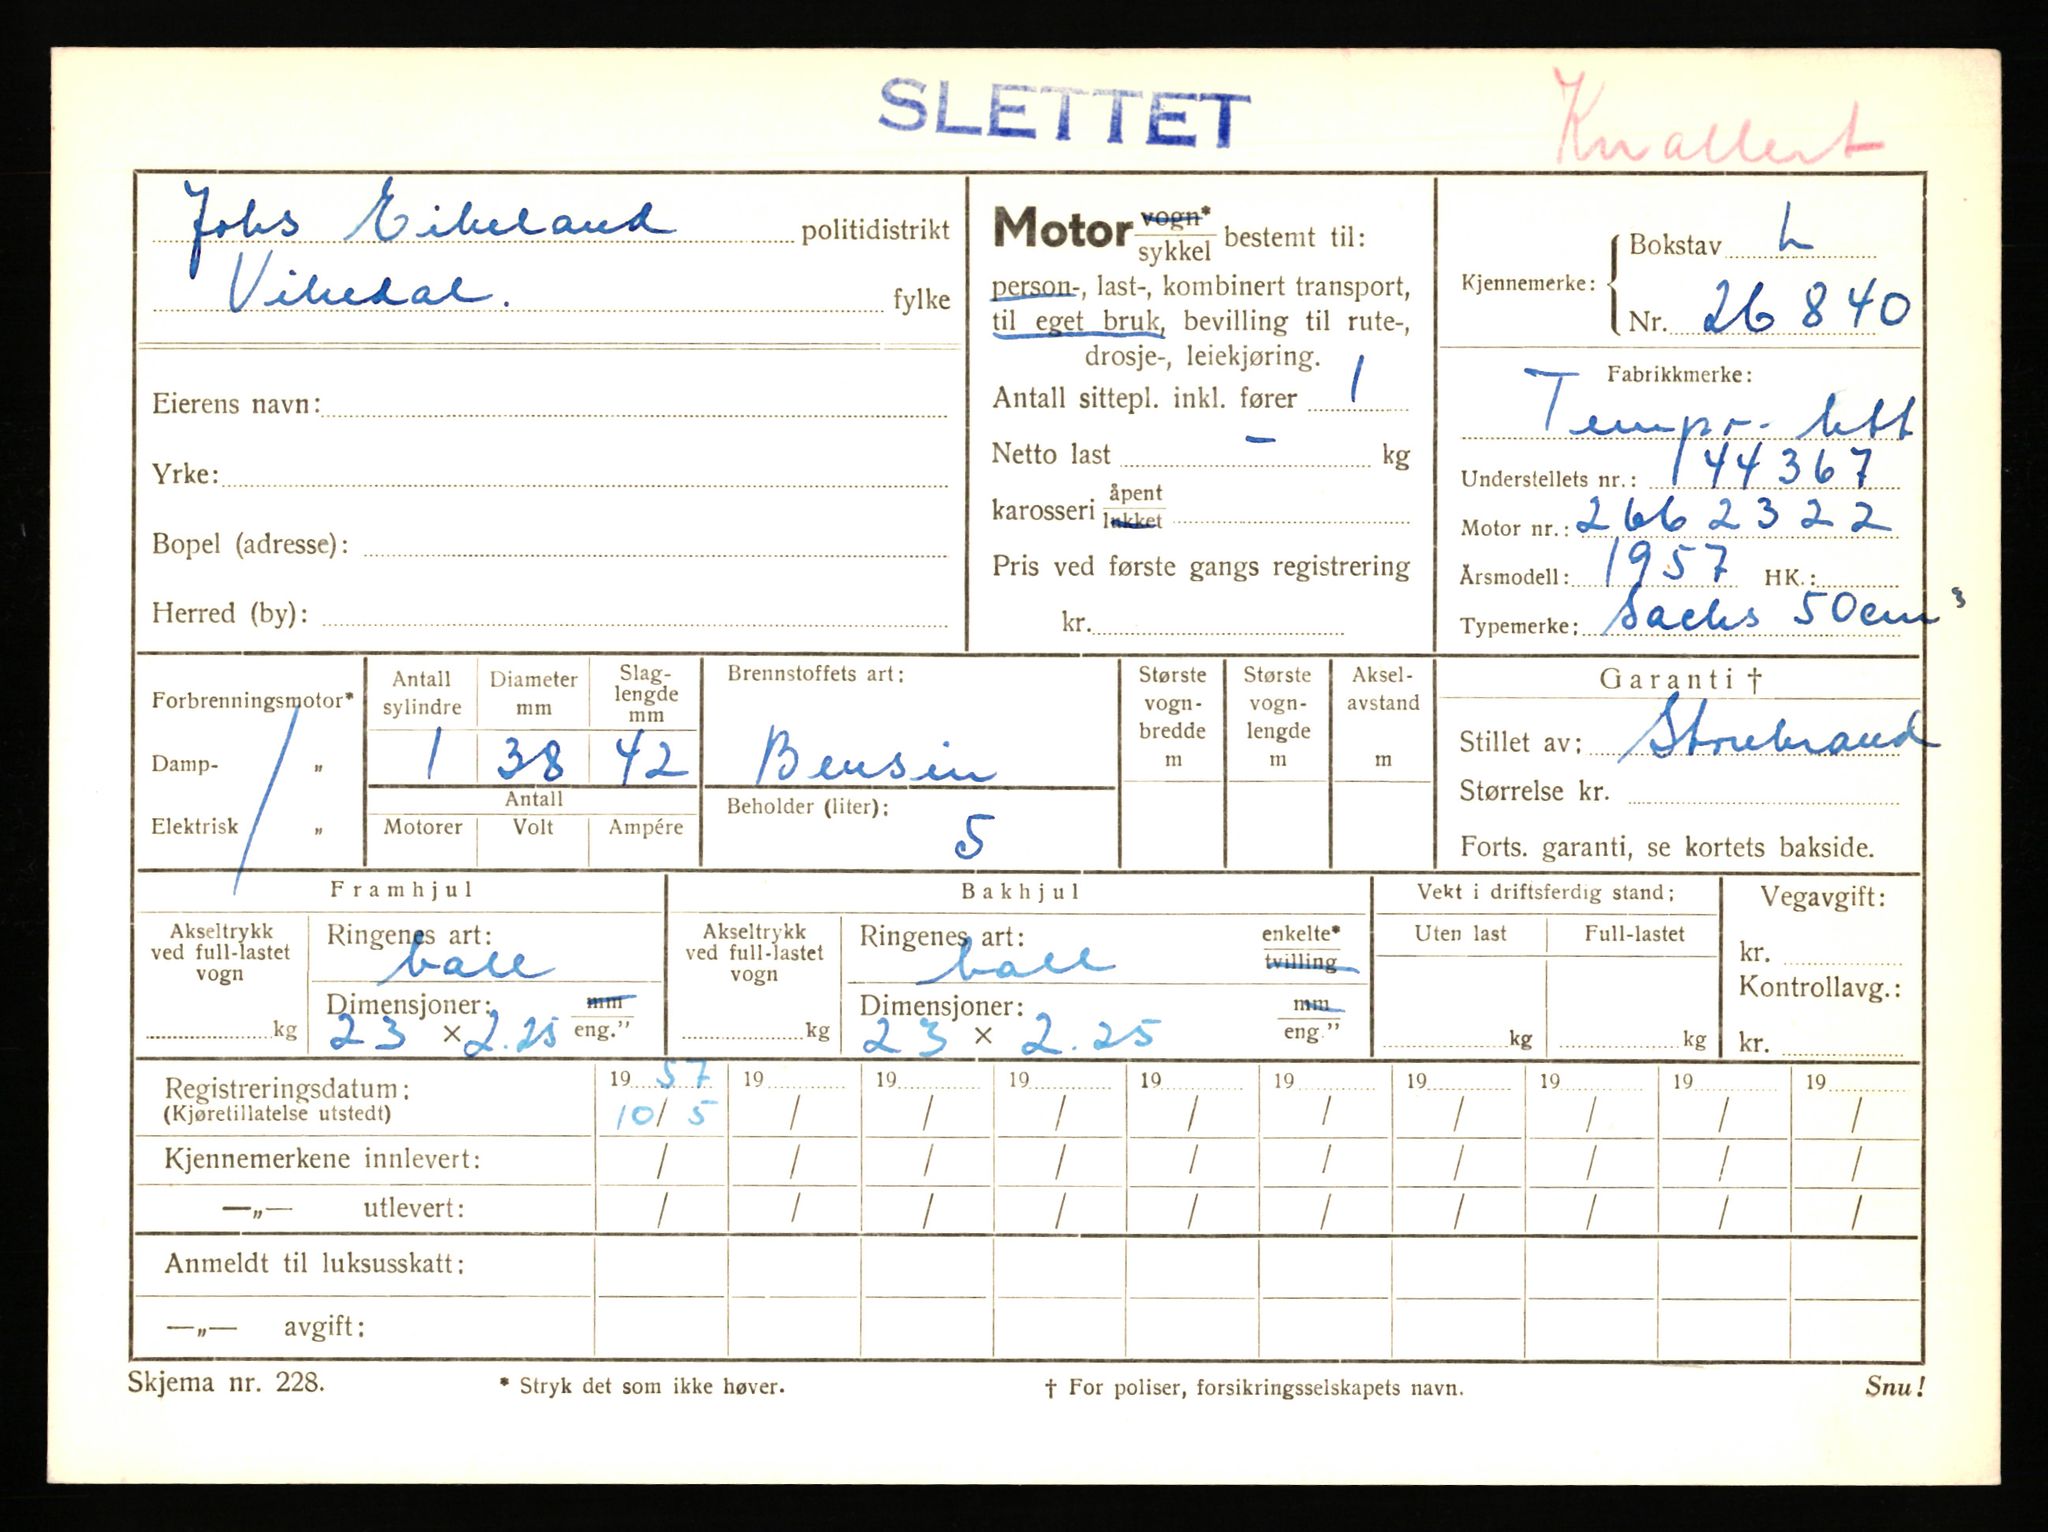 SLETTET
Knallert
Johs Eikeland politidistrikt
Vikedal. fylke
Eierens navn:
Yrke:
Bopel (adresse):
Herred (by):
Motor vogn* sykkel bestemt til:
person-, last-, kombinert transport,
til eget bruk, bevilling til rute-,
drosje-, leiekjøring.
Antall sittepl. inkl. fører 1
Netto last - kg
karosseri åpent lukket
Pris ved første gangs registrering
kr.
Kjennemerke: Bokstav L
Nr. 26840
Fabrikkmerke:
Tempo- lett
Understellets nr.: 144367
Motor nr.: 2662322
Årsmodell: 1957 HK.:
Typemerke: Sachs 50cm³
Forbrenningsmotor*
Damp- „
Elektrisk „
Antall sylindre
Diameter mm
Slag-lengde mm
1 38 42
Antall
Motorer Volt Ampére
Brennstoffets art:
Bensin
Beholder (liter):
5
Største vogn-bredde m
Største vogn-lengde m
Aksel-avstand m
Garanti †
Stillet av: Storebrand
Størrelse kr.
Forts. garanti, se kortets bakside.
Framhjul
Akseltrykk ved full-lastet vogn
kg
Ringenes art:
ball
Dimensjoner: mm
23 × 2.25 eng."
Bakhjul
Akseltrykk ved full-lastet vogn
kg
Ringenes art: enkelte*
ball tvilling
Dimensjoner: mm
23 × 2.25 eng."
Vekt i driftsferdig stand:
Uten last Full-lastet
kg kg
Vegavgift:
kr.
Kontrollavg.:
kr.
Registreringsdatum: 19 57 19 19 19 19 19 19 19 19 19
(Kjøretillatelse utstedt) 10/5 / / / / / / / / /
Kjennemerkene innlevert: / / / / / / / / / /
—„— utlevert: / / / / / / / / / /
Anmeldt til luksusskatt:
—„— avgift:
Skjema nr. 228. * Stryk det som ikke høver. † For poliser, forsikringsselskapets navn. Snu!